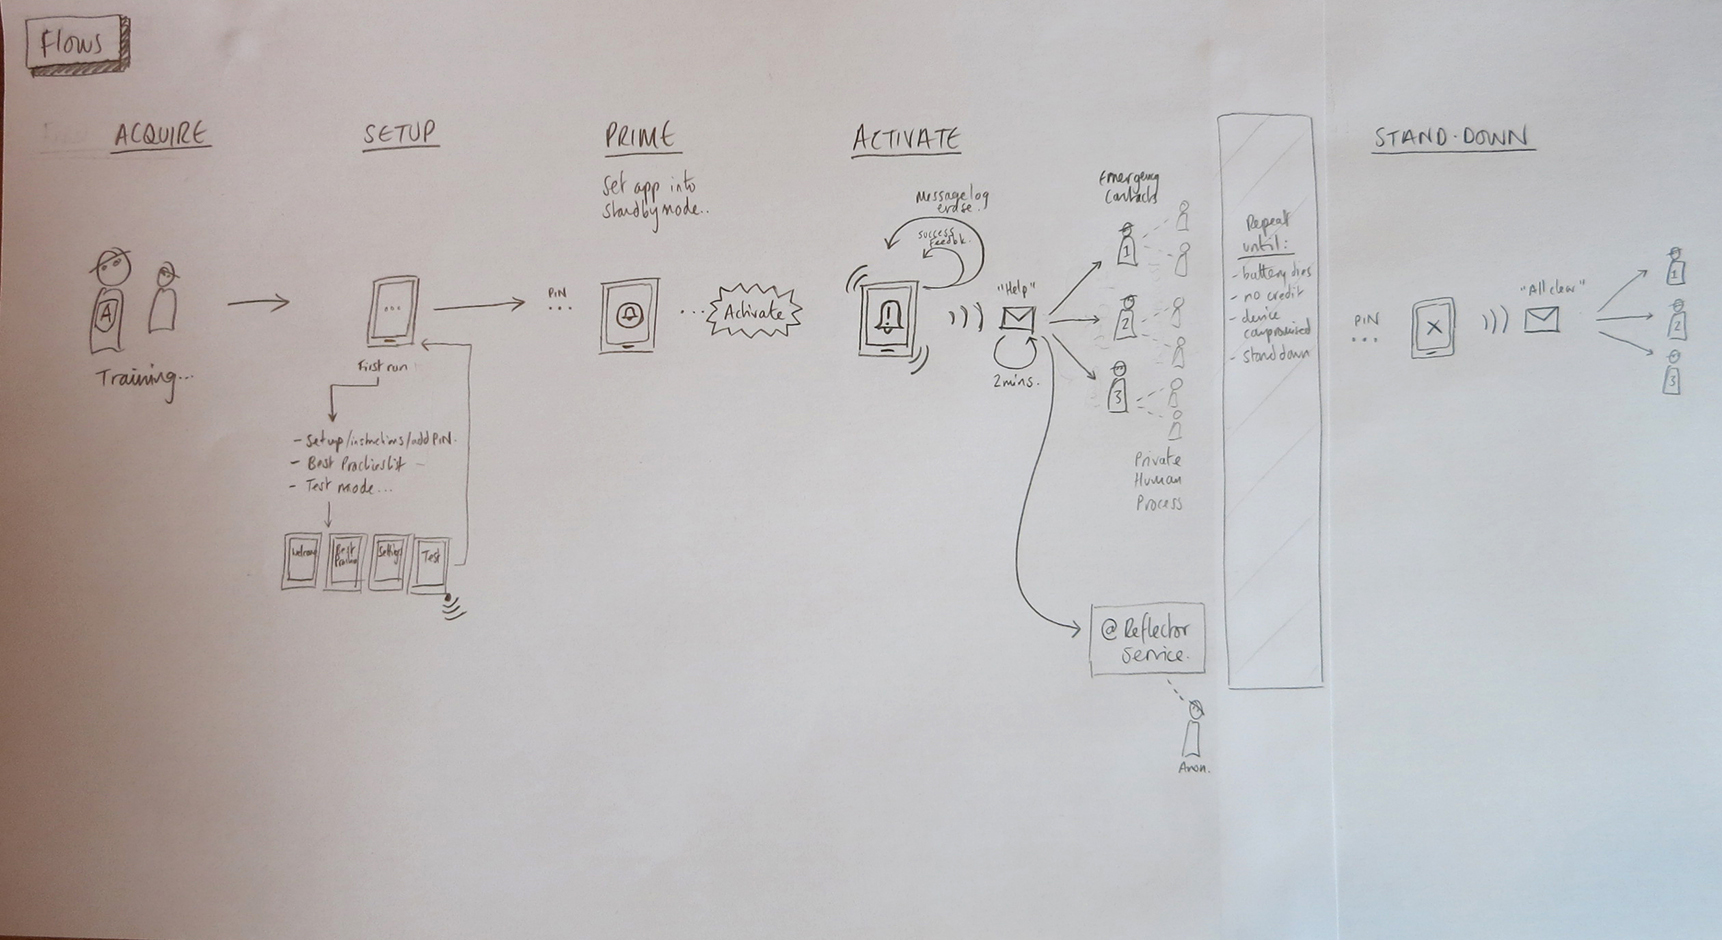 Flows
ACQUIRE
SETUP
PRIME
ACTIVATE
STAND-DOWN
A
Training...
...
First run
- Setup/instructions/add PIN.
- Best Practices list
- Test mode...
Welcome
Best
Practice
Settings
Test
PIN
...
Set app into
Standby mode..
... Activate
Message log
erase.
Success
Feedbk.
!
"Help"
2mins.
Emergency
Contacts
1
2
3
Private
Human
Process
@ Reflector
Service.
Anon.
Repeat
until:
- battery dies
- no credit
- device
compromised
- stand down
PIN
...
X
"All clear"
1
2
3